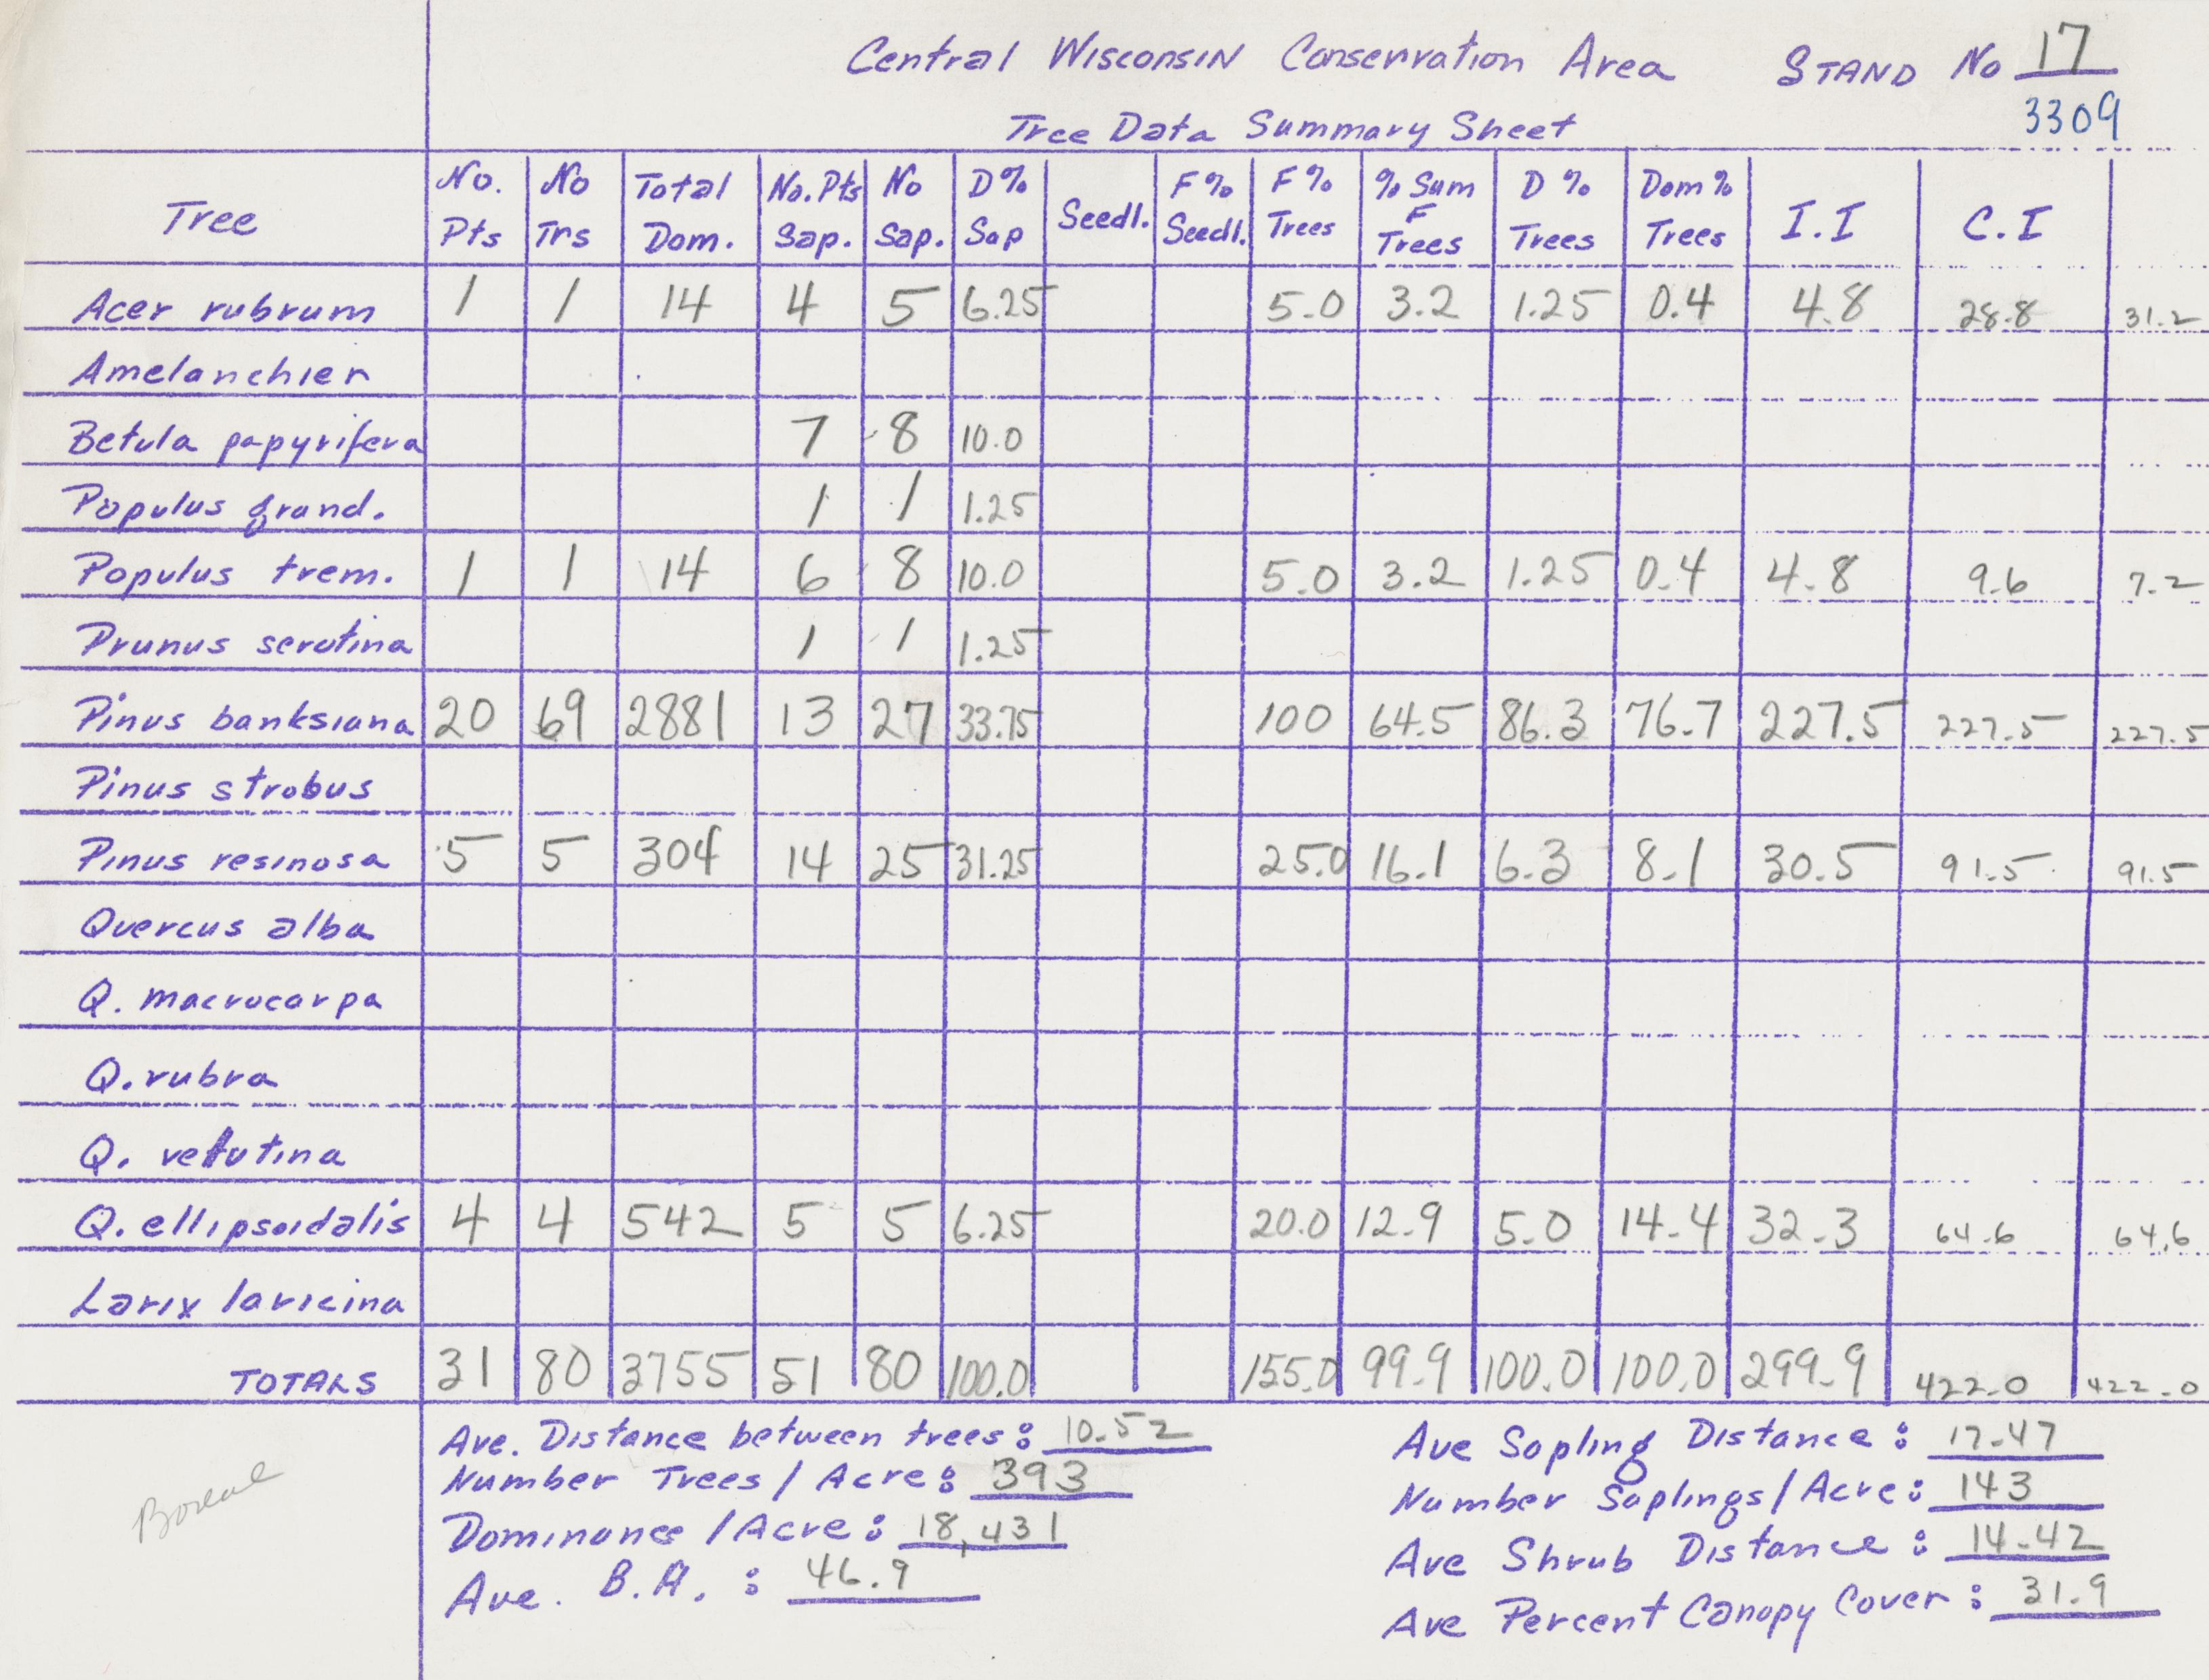 Central Wisconsin Conservation Area STAND No 17
3309
Tree Data Summary Sheet
Tree No. Pts No Trs Total Dom. No. Pts Sap. No Sap. D% Sap Seedl. F% Seedl. F% Trees % Sum F Trees D % Trees Dom % Trees I.I C.I
Acer rubrum 1 1 14 4 5 6.25 5.0 3.2 1.25 0.4 4.8 28.8 31.2
Amelanchier
Betula papyrifera 7 8 10.0
Populus grand. 1 1 1.25
Populus trem. 1 1 14 6 8 10.0 5.0 3.2 1.25 0.4 4.8 9.6 7.2
Prunus serotina 1 1 1.25
Pinus banksiana 20 69 2881 13 27 33.75 100 64.5 86.3 76.7 227.5 227.5 227.5
Pinus strobus
Pinus resinosa 5 5 304 14 25 31.25 25.0 16.1 6.3 8.1 30.5 91.5 91.5
Quercus alba
Q. macrocarpa
Q. rubra
Q. velutina
Q. ellipsoidalis 4 4 542 5 5 6.25 20.0 12.9 5.0 14.4 32.3 64.6 64.6
Larix laricina
TOTALS 31 80 3755 51 80 100.0 155.0 99.9 100.0 100.0 299.9 422.0 422.0
Ave. Distance between trees: 10.52
Number Trees / Acre: 393
Dominance / Acre: 18,431
Ave. B.A. : 46.9
Ave Sapling Distance: 17.47
Number Saplings / Acre: 143
Ave Shrub Distance: 14.42
Ave Percent Canopy Cover: 31.9
Boreal